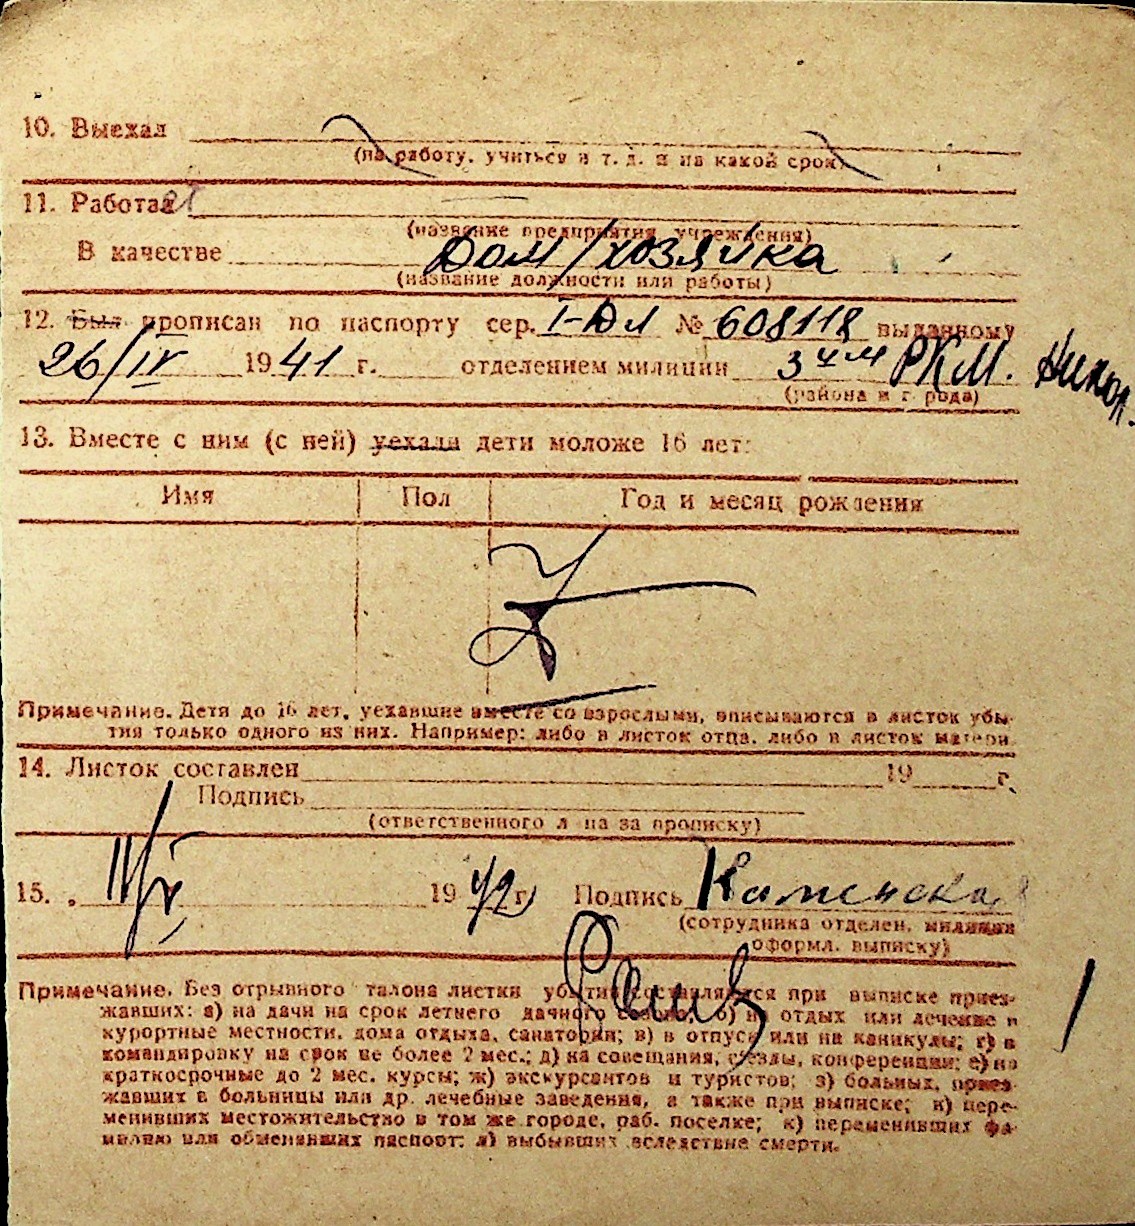 10. Выехал
(на работу, учиться и т. д. и на какой срок)
11. Работал
(название предприятия, учреждения)
В качестве Дом/хозяйка
(название должности или работы)
12. Был прописан по паспорту сер. I-Юл № 608118 выданному
26/IV 1941 г. отделением милиции 3чм РКМ. Никол.
(района и города)
13. Вместе с ним (с ней) уехали дети моложе 16 лет:
Имя Пол Год и месяц рождения
Примечание. Дети до 16 лет, уехавшие вместе со взрослыми, вписываются в листок убы-
тия только одного из них. Например: либо в листок отца, либо в листок матери
14. Листок составлен 19 г.
Подпись
(ответственного лица за прописку)
15. 11/V 1942 г. Подпись Каменская
(сотрудника отделен. милиции
оформл. выписку)
Примечание. Без отрывного талона листки убытия составляются при выписке приез-
жавших: а) на дачи на срок летнего дачного сезона; б) на отдых или лечение в
курортные местности, дома отдыха, санатории; в) в отпуск или на каникулы; г) в
командировку на срок не более 2 мес.; д) на совещания, съезды, конференции; е) на
краткосрочные до 2 мес. курсы; ж) экскурсантов и туристов; з) больных, приез-
жавших в больницы или др. лечебные заведения, а также при выписке; и) пере-
менивших местожительство в том же городе, раб. поселке; к) переменивших фа-
милию или обменявших паспорт; л) выбывших вследствие смерти.